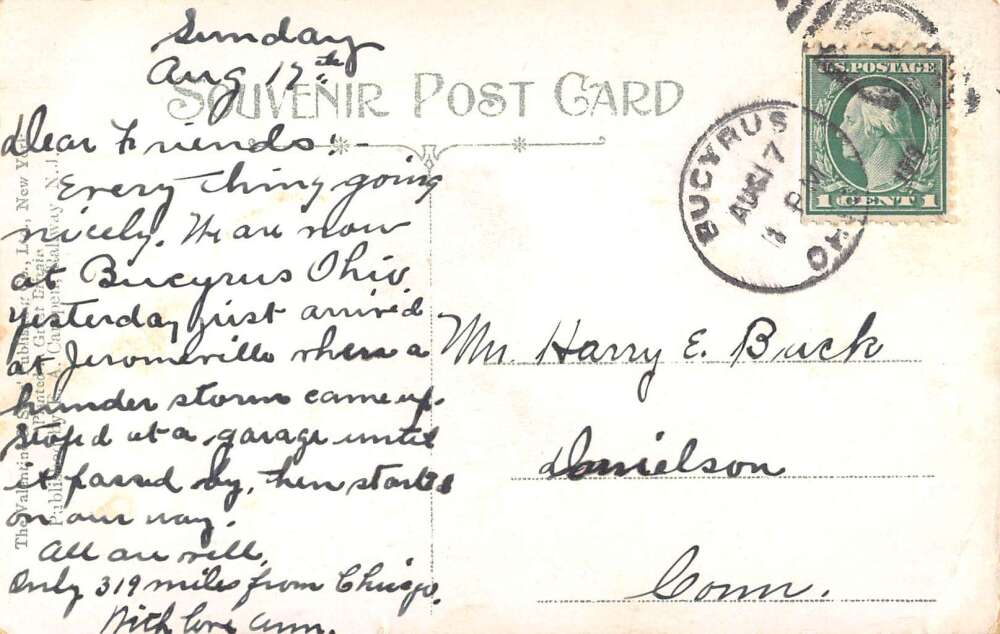 Sunday
Aug 17th
SOUVENIR POST CARD
Dear Friends:-
Every thing going
nicely. We are now
at Bucyrus Ohio.
Yesterday just arrived
at Jeromeville when a
thunder storm came up.
Stoped at a garage until
it passed by, then started
on our way.
All are well.
Only 319 miles from Chicago.
With love Ann.
The Valentine & Sons' Publishing Co., Ltd., New York
Printed in Great Britain
Published by A. Carpenter, Rahway N. J.
BUCYRUS
AUG 17
PM
OHIO
U.S. POSTAGE
1 CENT 1
Mr. Harry E. Buck
Danielson
Conn.